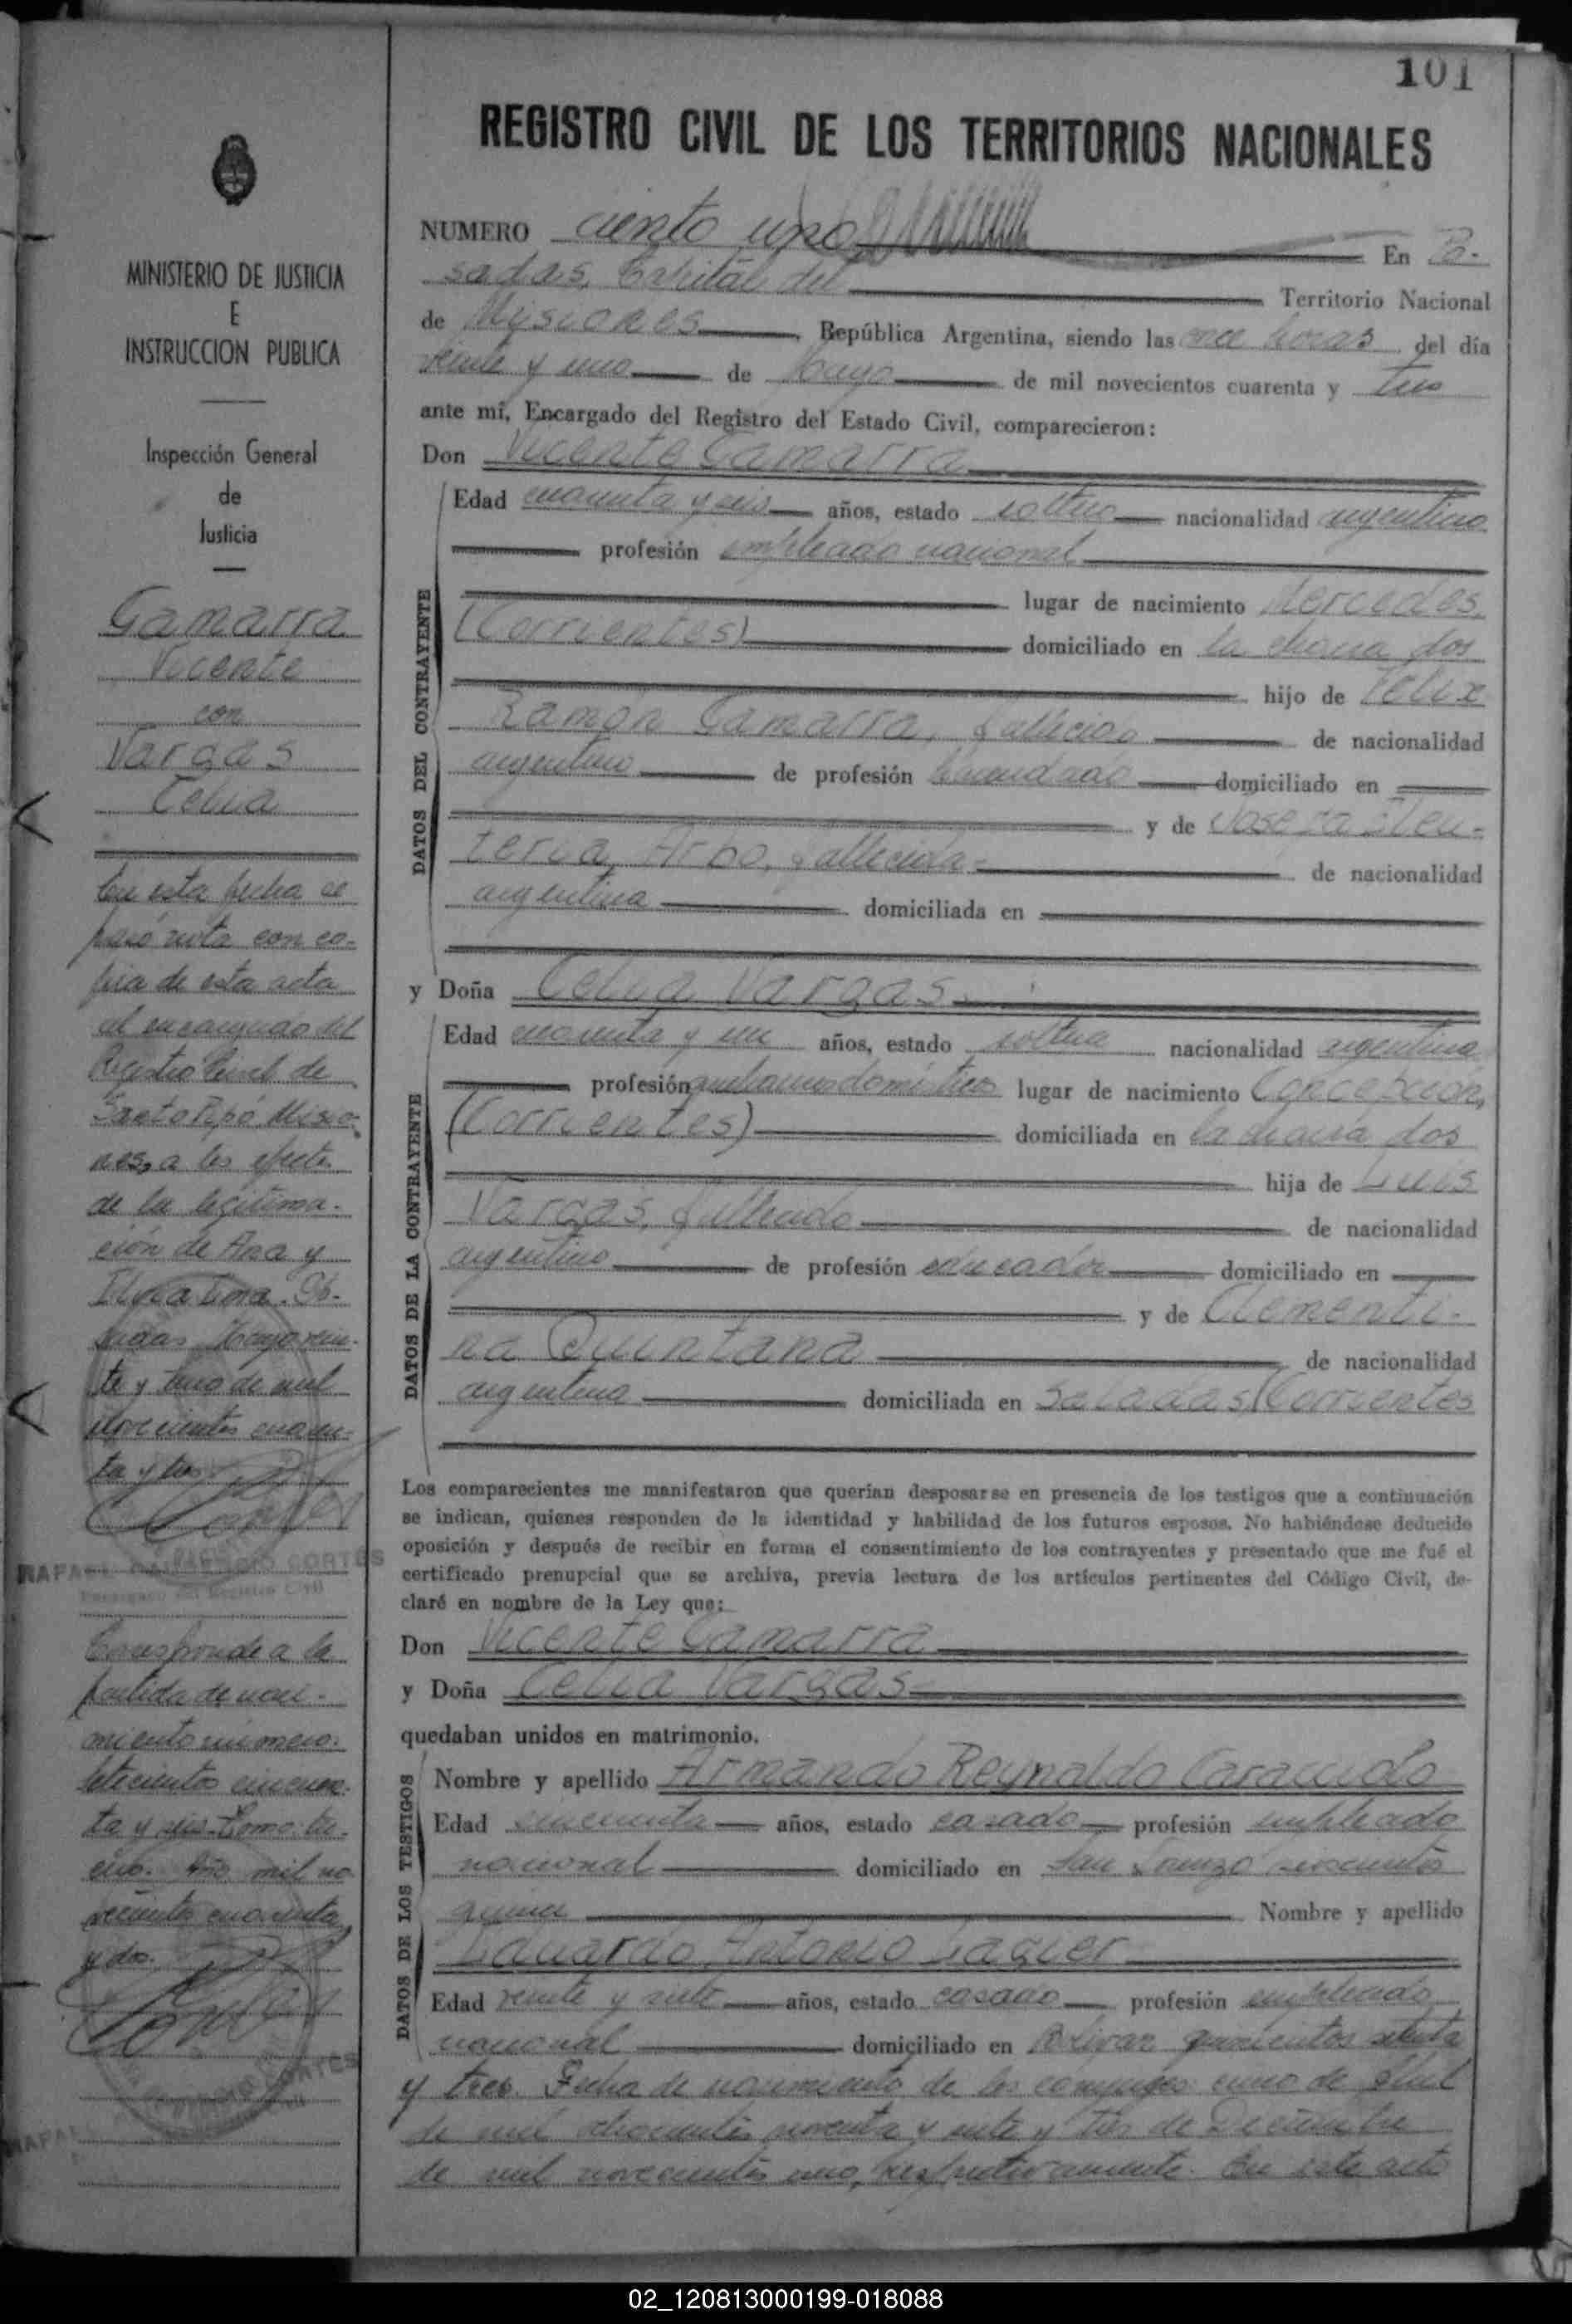 101
REGISTRO CIVIL DE LOS TERRITORIOS NACIONALES
NUMERO ciento uno En Po-
sadas, Capital del Territorio Nacional
de Misiones República Argentina, siendo las once horas del día
veinte y uno de Mayo de mil novecientos cuarenta y tres
ante mí, Encargado del Registro del Estado Civil, comparecieron:
Don Vicente Gamarra
DATOS DEL CONTRAYENTE
Edad cuarenta y seis años, estado soltero nacionalidad argentino
profesión empleado nacional
lugar de nacimiento Mercedes,
(Corrientes) domiciliado en la chacra dos
hijo de Felix
Ramón Gamarra, fallecido de nacionalidad
argentino de profesión hacendado domiciliado en
y de Josefa Eleu-
teria Arbo, fallecida de nacionalidad
argentina domiciliada en
y Doña Celia Vargas
DATOS DE LA CONTRAYENTE
Edad cuarenta y un años, estado soltera nacionalidad argentina
profesión quehaceres domésticos lugar de nacimiento Concepción,
(Corrientes) domiciliada en la chacra dos
hija de Luis
Vargas, fallecido de nacionalidad
argentino de profesión educador domiciliado en
y de Clementi-
na Quintana de nacionalidad
argentina domiciliada en Saladas, Corrientes
Los comparecientes me manifestaron que querían desposarse en presencia de los testigos que a continuación
se indican, quienes responden de la identidad y habilidad de los futuros esposos. No habiéndose deducido
oposición y después de recibir en forma el consentimiento de los contrayentes y presentado que me fué el
certificado prenupcial que se archiva, previa lectura de los artículos pertinentes del Código Civil, de-
claré en nombre de la Ley que:
Don Vicente Gamarra
y Doña Celia Vargas
quedaban unidos en matrimonio.
DATOS DE LOS TESTIGOS
Nombre y apellido Armando Reynaldo Caracciolo
Edad cincuenta años, estado casado profesión empleado
nacional domiciliado en San Lorenzo
quince Nombre y apellido
Eduardo Antonio Lagier
Edad veinte y siete años, estado casado profesión empleado
nacional domiciliado en Bolívar
y tres. Fecha de nacimiento de los conyuges: cinco de Abril
de mil ochocientos noventa y siete y tres de Diciembre
de mil novecientos uno, respectivamente. En este acto
MINISTERIO DE JUSTICIA
E
INSTRUCCION PUBLICA
Inspección General
de
Justicia
Gamarra
Vicente
con
Vargas
Celia
En esta fecha se
pasó nota con co-
pia de esta acta
al encargado del
Registro Civil de
Santo Pipó Misio-
nes, a los efectos
de la legitima-
ción de Ana y
sadas Mayo vein-
te y uno de mil
novecientos cuaren-
ta y tres
RAFAEL CORTES
Encargado del Registro Civil
Corresponde a la
partida de naci-
miento número:
setecientos cincuen-
ta y seis. Tomo: ter-
cero. Año mil no-
vecientos cuarenta
y dos.
02_120813000199-018088